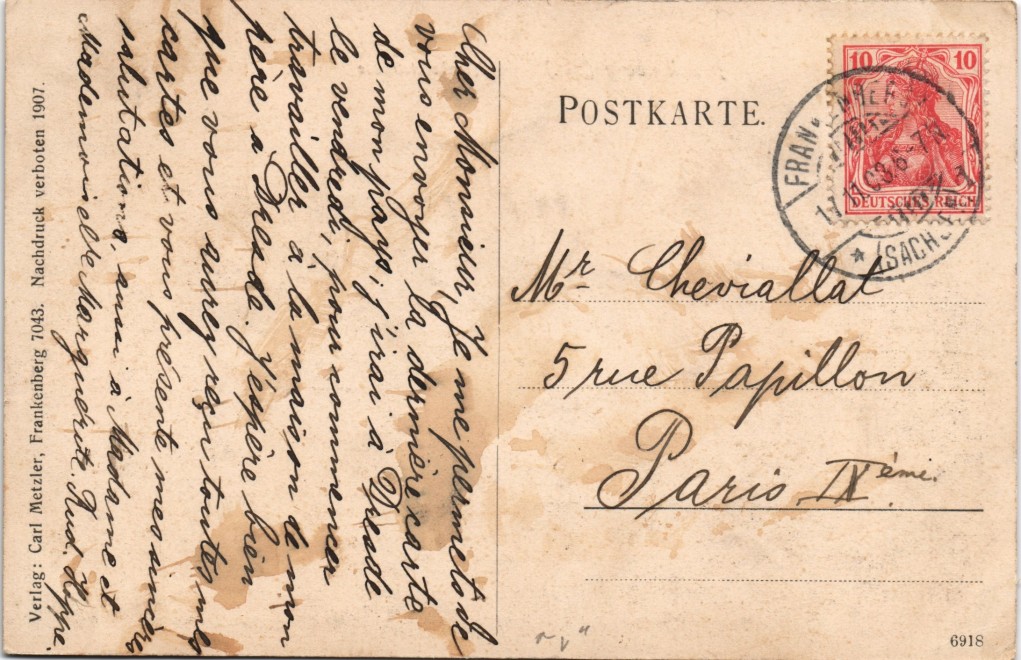 POSTKARTE.
10 10
DEUTSCHES REICH
(SACHSEN)
Cher Monsieur, Je me permets de
vous envoyer la dernière carte
de mon pays; j'irai à Dresde
le vendredi, pour commencer
travailler à la maison de mon
père à Dresde. J'espère bien
que vous aurez reçu toutes mes
cartes et vous présente mes sincères
salutations, aussi à Madame et
Mademoiselle Marguerite. Rud. Hoppe.
Mr Cheviallat
5 rue Papillon
Paris IXème.
Verlag: Carl Metzler, Frankenberg 7043. Nachdruck verboten 1907.
6918